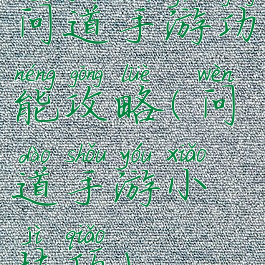 问道手游功
néng gōng lüè wèn
能攻略(问
dào shǒu yóu xiǎo
道手游小
jì qiǎo
技巧)